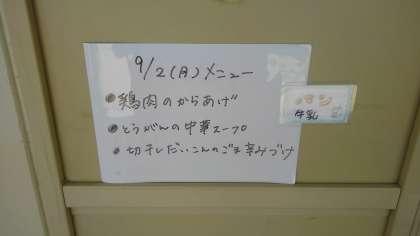 9/2(月)メニュー
●鶏肉のからあげ
●とうがんの中華スープ
●切干しだいこんのごま辛みづけ
パン
牛乳